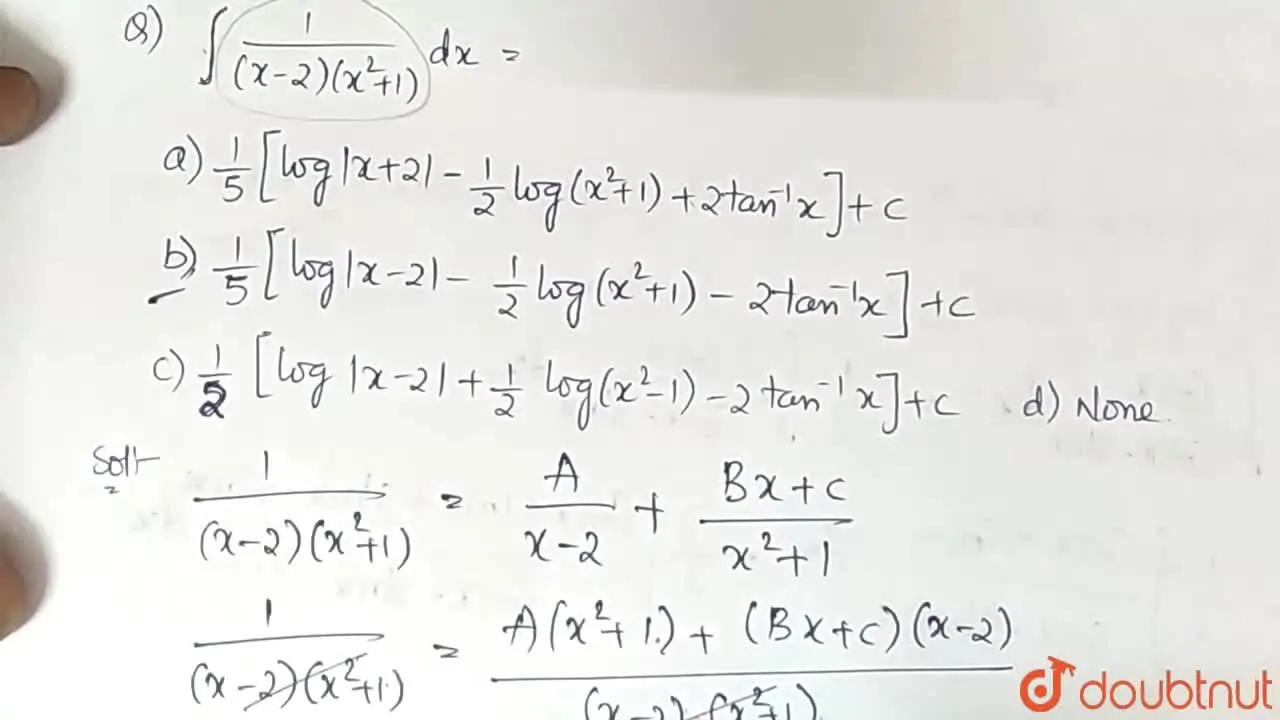 Q) ∫ 1/((x-2)(x²+1)) dx =
a) 1/5 [log|x+2| - 1/2 log(x²+1) + 2tan⁻¹x] + c
b) 1/5 [log|x-2| - 1/2 log(x²+1) - 2tan⁻¹x] + c
c) 1/2 [log|x-2| + 1/2 log(x²-1) - 2tan⁻¹x] + c d) None
Sol:-
1/((x-2)(x²+1)) = A/(x-2) + (Bx+c)/(x²+1)
1/((x-2)(x²+1)) = (A(x²+1) + (Bx+c)(x-2))/((x-2)(x²+1))
doubtnut